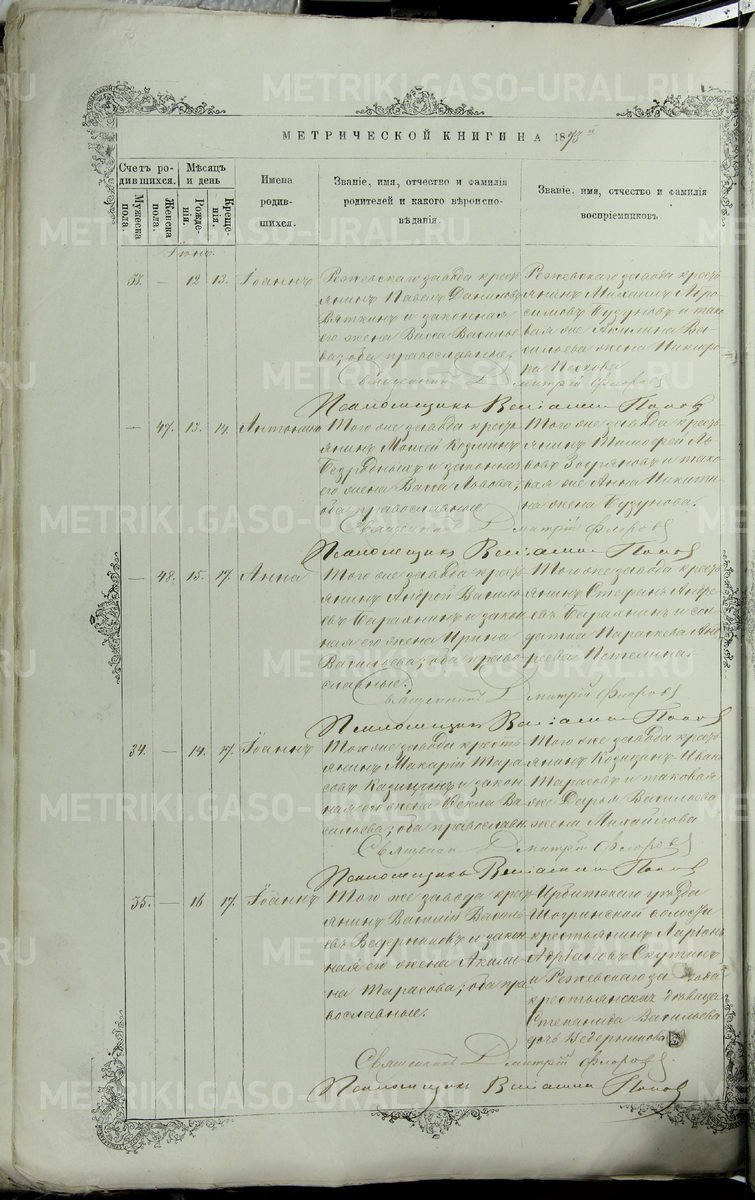 МЕТРИЧЕСКОЙ КНИГИ НА 1878й
Счетъ ро-
дившихся.
Мужеска
пола.
Женска
пола.
Мѣсяцъ
и день
Рожде-
нія.
Креще-
нія.
Имена
родив-
шихся.
Званіе, имя, отчество и фамилія
родителей и какого вѣроиспо-
вѣданія.
Званіе, имя, отчество и фамилія
воспріемниковъ.
Іюнь.
33. — 12 13. Іоаннъ
Режевскаго завода крестъ
янинъ Павелъ Даниловъ
Вяткинъ и законная
его жена Васса Василье
ва; оба православные.
Режевскаго завода кресть
янинъ Михаилъ Абро
симовъ Бузуновъ и тако
вая же Акилина Ва
сильева жена Никифо
ра Пескова
Священникъ Димитрій Флоровъ
Псаломщикъ Веніаминъ Поповъ
— 47. 13. 14. Антонина
Того же завода кресть
янинъ Моисей Козминъ
и законная
его жена Васса Львова;
оба православные
Того же завода кресть
янинъ Тимофей Ль
вовъ и тако
вая же Анна Никити
на жена Бузунова.
Священникъ Димитрій Флоровъ
Псаломщикъ Веніаминъ Поповъ
— 48. 15. 17. Анна
Того же завода кресть
янинъ Андрей Василь
евъ и закон
ная его жена Ирина
Васильева; оба право
славные.
Того же завода кресть
янинъ Стефанъ Андре
евъ и сол
датка Параскева Анд
реева
Священникъ Димитрій Флоровъ
Псаломщикъ Веніаминъ Поповъ
34. — 14. 17. Іоаннъ
Того же завода кресть
янинъ Макарій Тара
совъ Козицинъ и закон
ная его жена Ѳекла Ва
сильева; оба православн.
Того же завода кресть
янинъ Козицинъ Иванъ
Тарасовъ и таковая
же Дарья Васильева
жена Михайлова
Священникъ Димитрій Флоровъ
Псаломщикъ Веніаминъ Поповъ
35. — 16 17. Іоаннъ
Того же завода крест
янинъ Василій Василь
евъ Ведерниковъ и закон
ная его жена Акили
на Тарасова; оба пра
вославные.
Ирбитскаго уѣзда
Шогринской волости
крестьянинъ Ларіонъ
Скутинъ
и Режевскаго завода
крестьянская дѣвица
Степанида Васильева
дочь Ведерникова
Священникъ Димитрій Флоровъ.
Псаломщикъ Веніаминъ Поповъ
METRIKI.GASO-URAL.RU